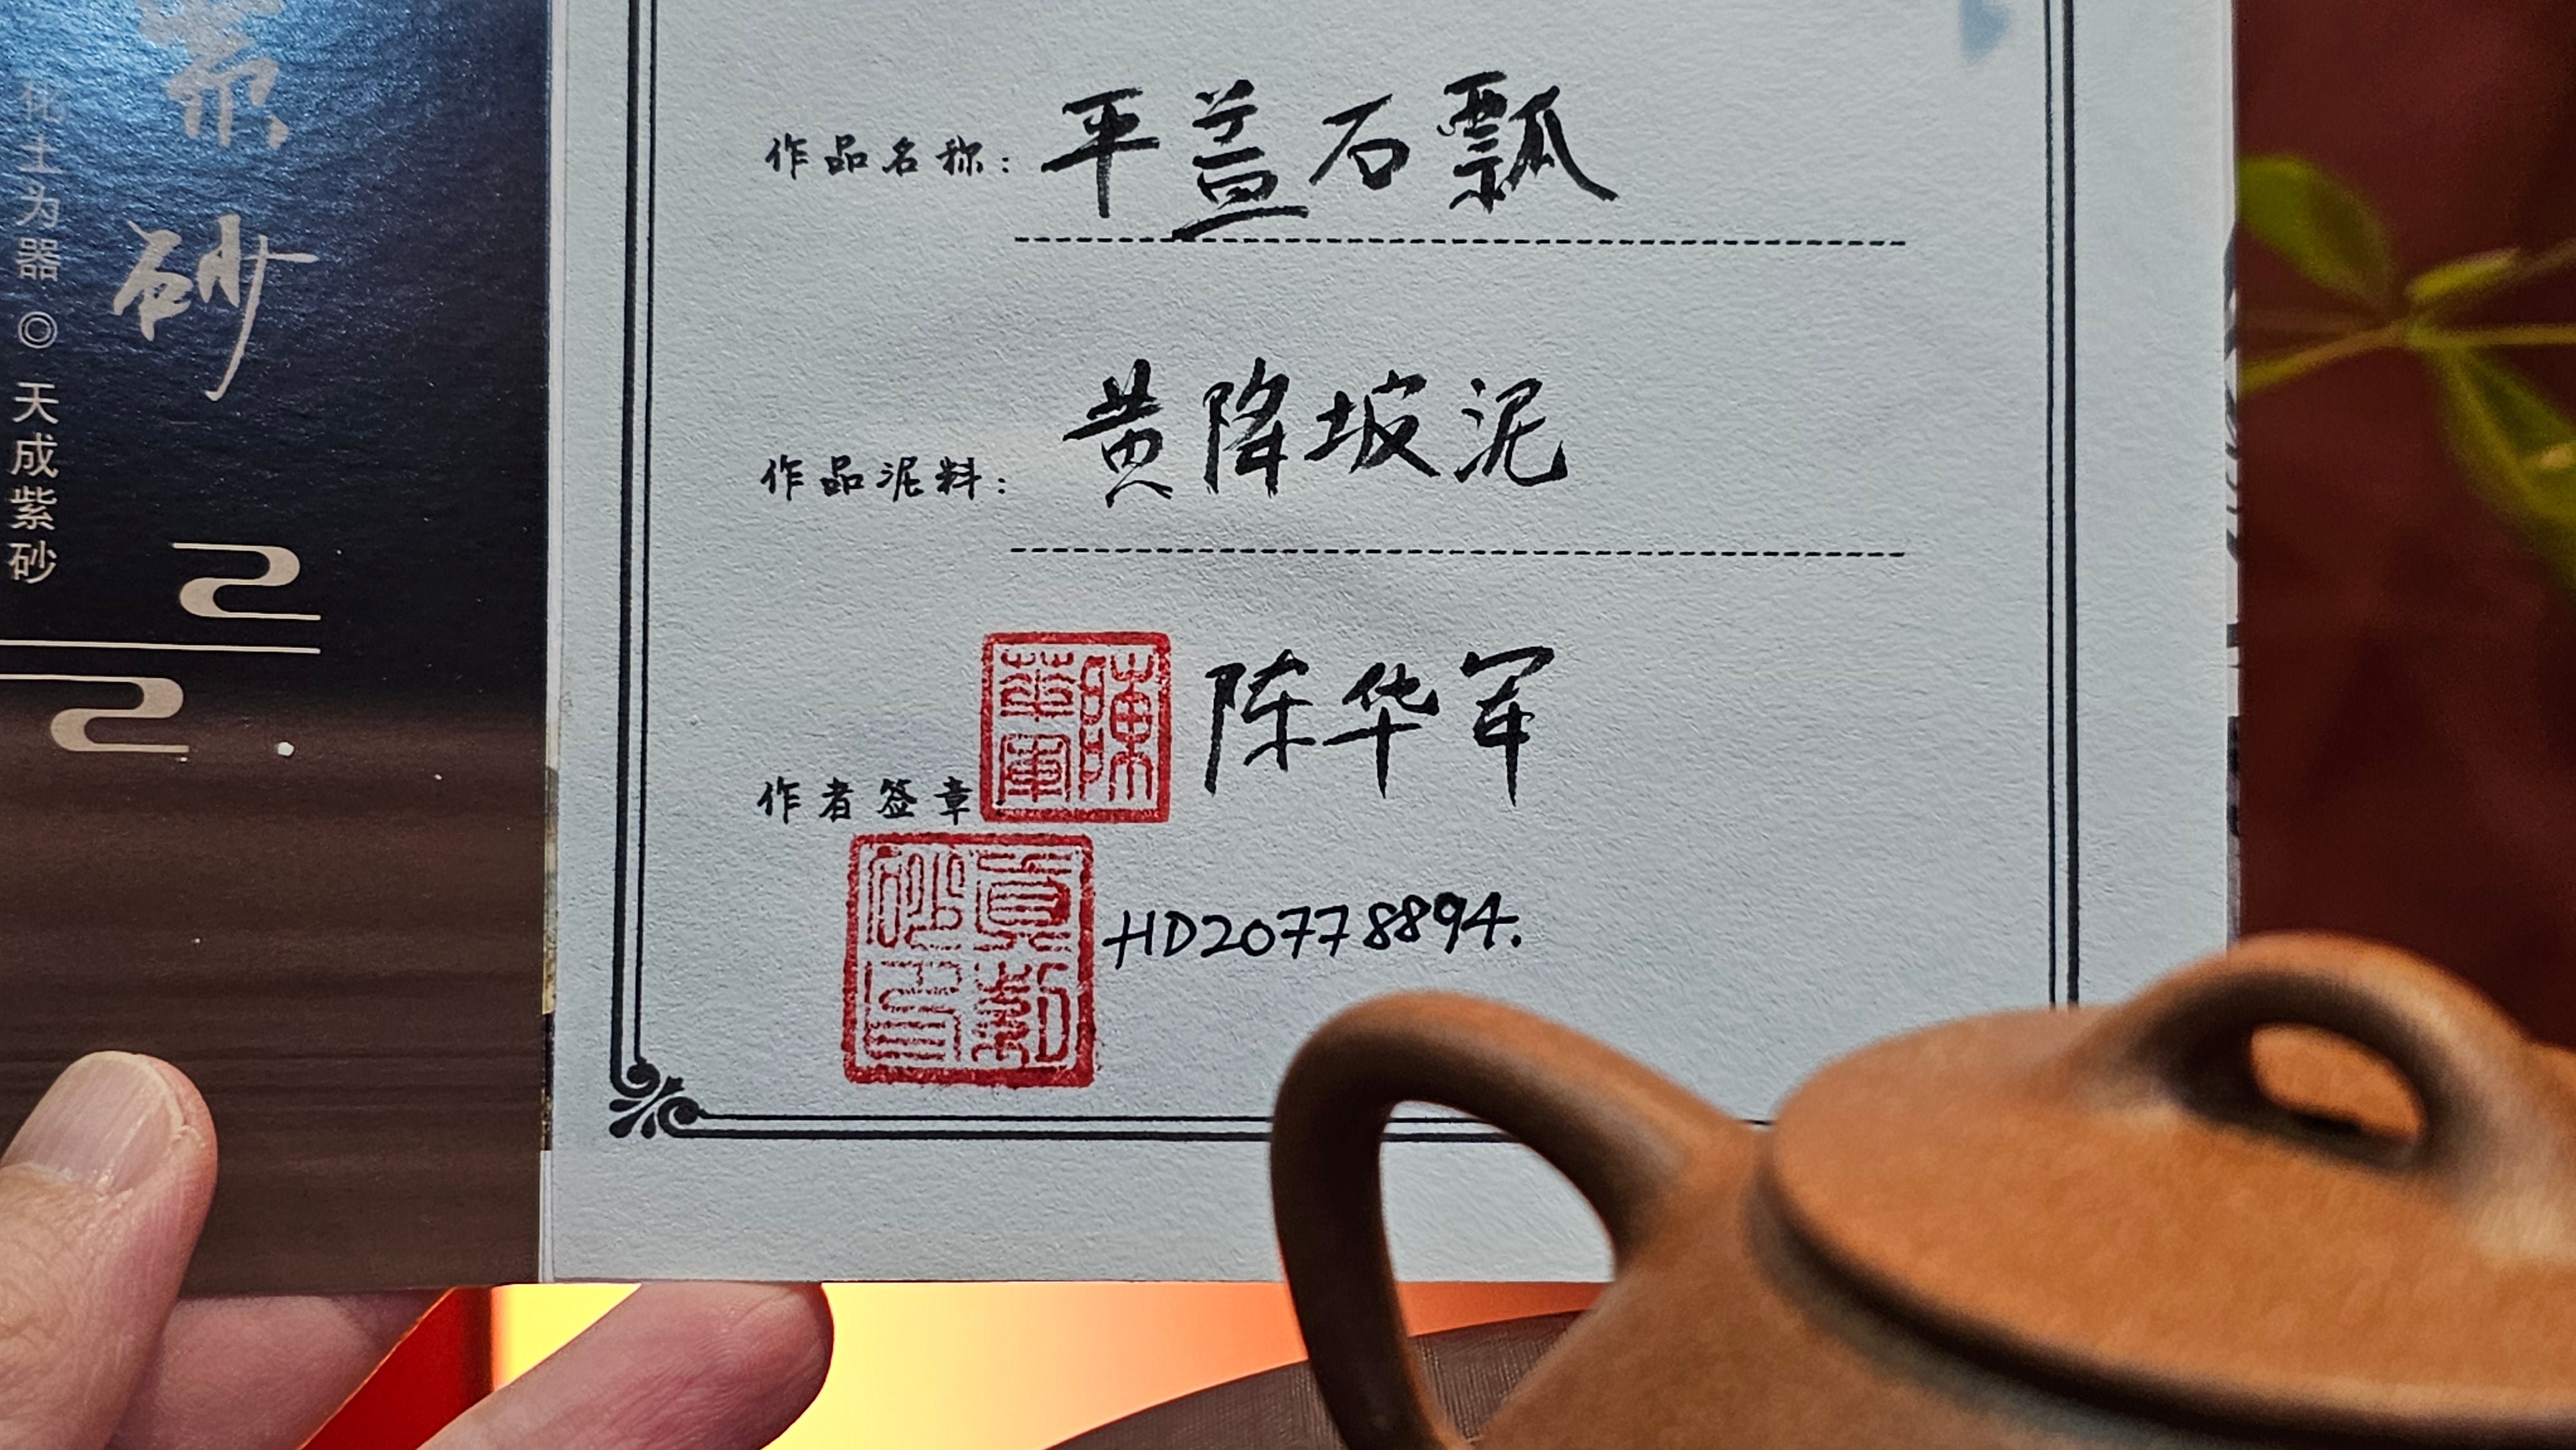 紫砂
化土为器◎天成紫砂
作品名称：平盖石瓢
作品泥料：黄降坡泥
陳華軍
作者签章 陈华军
HD20778894.